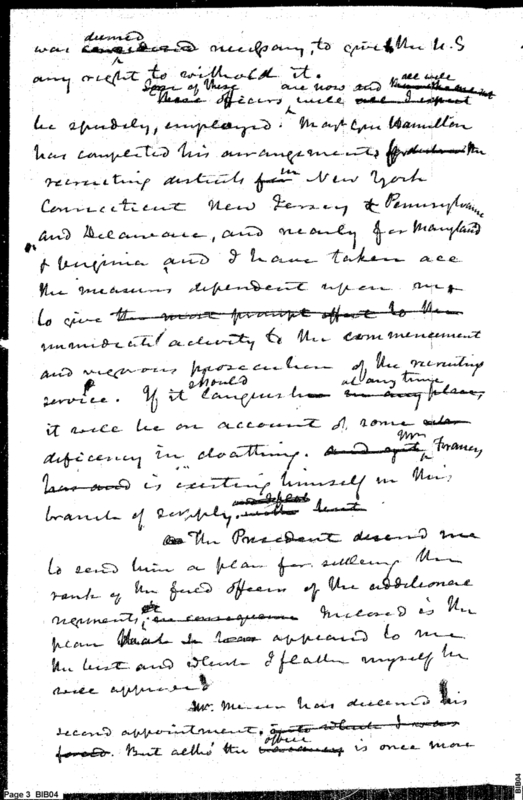 deemed
was considered necessary, to give the U.S
any right to withold it.
Some of these are now and all will
These officers, will all I expect
be speedily, employed. Majr Genl Hamilton
has completed his arrangements for the
recruiting districts for in New York
Connecticut New Jersey & Pennsylvania
and Delaware, and nearly for Maryland
& Virginia, and I have taken all
the measures dependent upon me,
to give the most prompt effect to the
immediate activity to the commencement
and vigorous prosecution of the recruiting
should at any time
service. If it languish in any place,
it will be on account of some
deficiency in cloathing. Mr Francis
has and is exerting himself in this
branch of supply.
The President desired me
to send him a plan for settling the
rank of the field officers of the additional
regiments, in consequence Inclosed is the
plan that has appeared to me
the best and which I flatter myself he
will approve
Mr. Mercer has declined his
second appointment, into which I was
office
forced. But altho' the vacancy is once more
Page 3 BIB04
BIB04